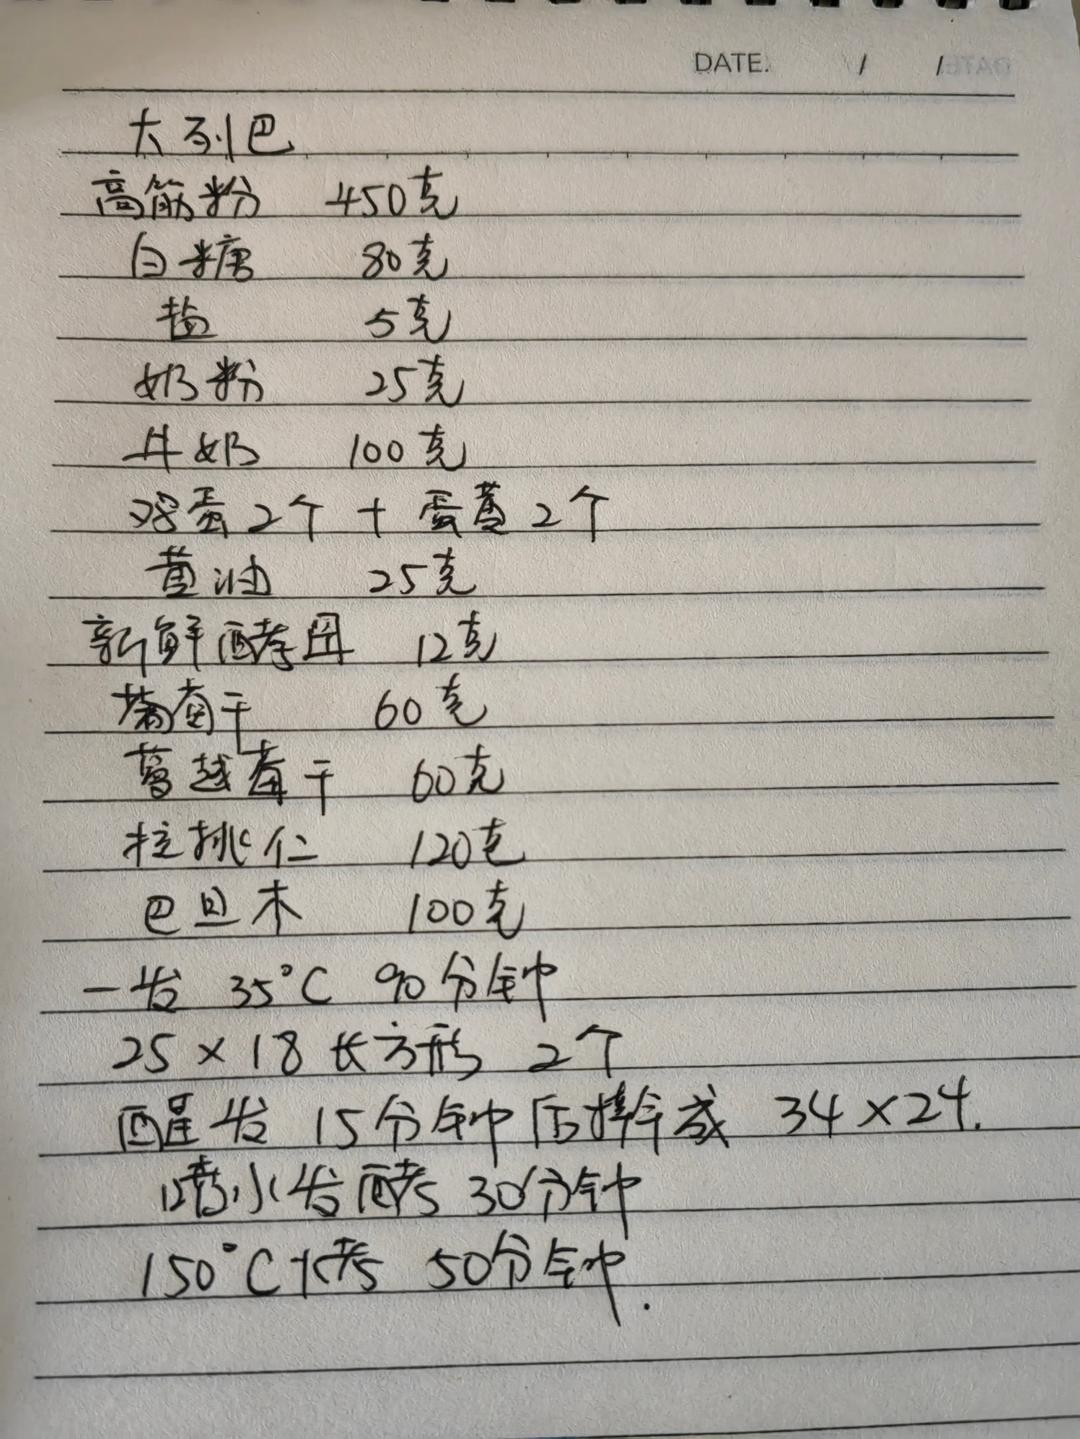 DATE. / /
大列巴
高筋粉 450克
白糖 80克
盐 5克
奶粉 25克
牛奶 100克
鸡蛋2个 + 蛋黄2个
黄油 25克
新鲜酵母 12克
葡萄干 60克
蔓越莓干 60克
核桃仁 120克
巴旦木 100克
一发 35°C 90分钟
25×18 长方形 2个
醒发 15分钟后擀成 34×24.
发酵 30分钟
150°C 烤 50分钟.